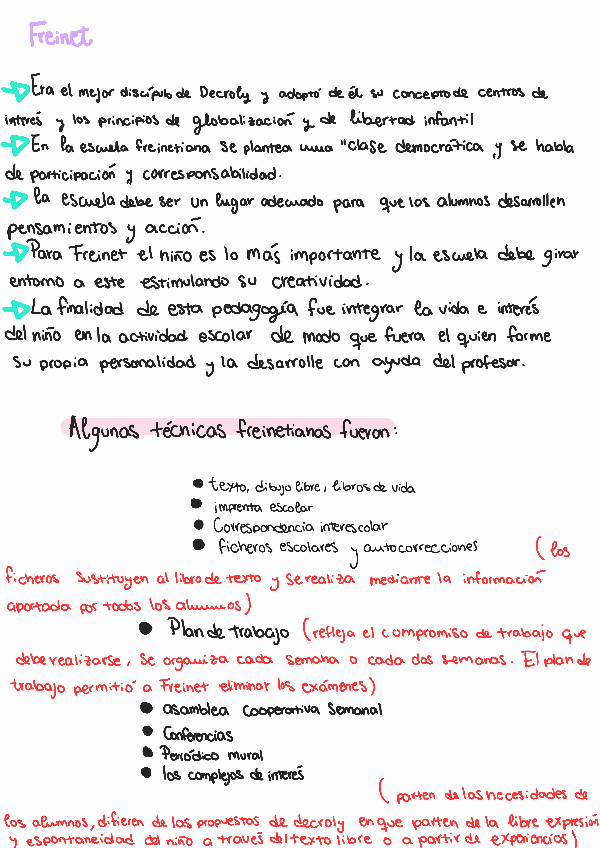 Freinet
Era el mejor discípulo de Decroly y adoptó de él su concepto de centros de
interés y los principios de globalización y de libertad infantil
En la escuela freinetiana se plantea una "clase democrática, y se habla
de participación y corresponsabilidad.
la escuela debe ser un lugar adecuado para que los alumnos desarrollen
pensamientos y acción.
Para Freinet el niño es lo más importante y la escuela debe girar
entorno a este estimulando su creatividad.
La finalidad de esta pedagogía fue integrar la vida e interés
del niño en la actividad escolar de modo que fuera el quien forme
su propia personalidad y la desarrolle con ayuda del profesor.
Algunas técnicas freinetianas fueron:
● texto, dibujo libre, libros de vida
● imprenta escolar
● Correspondencia interescolar
● ficheros escolares y autocorrecciones (los
ficheros sustituyen al libro de texto y se realiza mediante la información
aportada por todos los alumnos)
● Plan de trabajo (refleja el compromiso de trabajo que
debe realizarse, se organiza cada semana o cada dos semanas. El plan de
trabajo permitió a Freinet eliminar los exámenes)
● asamblea cooperativa semanal
● Conferencias
● Periódico mural
● los complejos de interés
(parten de las necesidades de
los alumnos, difieren de las propuestas de decroly en que parten de la libre expresión
y espontaneidad del niño a través del texto libre o a partir de experiencias)